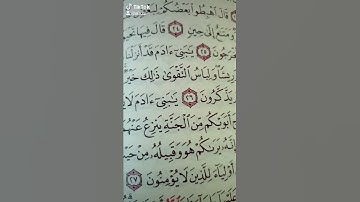 TikTok
قَالَ ٱهْبِطُوا۟ بَعْضُكُمْ
وَمَتَٰعٌ إِلَىٰ حِينٍ ٢٤ قَالَ فِيهَا
تُخْرَجُونَ ٢٥ يَٰبَنِىٓ ءَادَمَ قَدْ أَنزَلْنَا
وَرِيشًا وَلِبَاسُ ٱلتَّقْوَىٰ ذَٰلِكَ خَيْرٌ
يَذَّكَّرُونَ ٢٦ يَٰبَنِىٓ ءَادَمَ لَا
أَبَوَيْكُم مِّنَ ٱلْجَنَّةِ يَنزِعُ عَنْهُمَا
إِنَّهُۥ يَرَىٰكُمْ هُوَ وَقَبِيلُهُۥ مِنْ حَيْثُ
أَوْلِيَآءَ لِلَّذِينَ لَا يُؤْمِنُونَ ٢٧